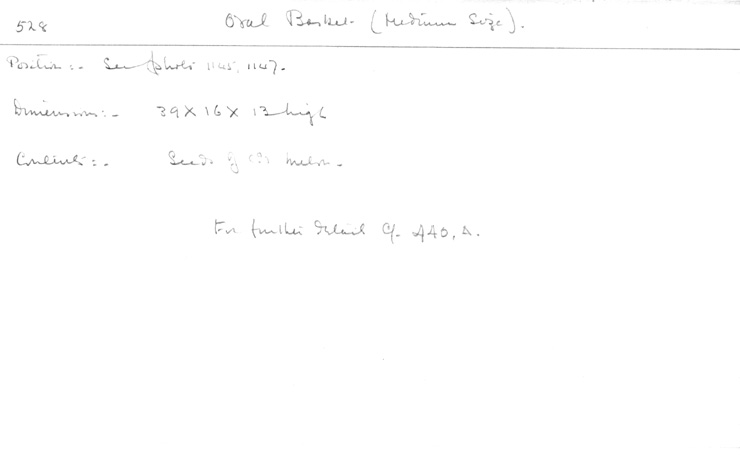 528 Oval Basket (Medium Size).
Position:- See photo 1145, 1147.
Dimensions:- 39 X 16 X 13 high
Contents:- Seeds of (?) melon.
For further detail Cf. 440, A.